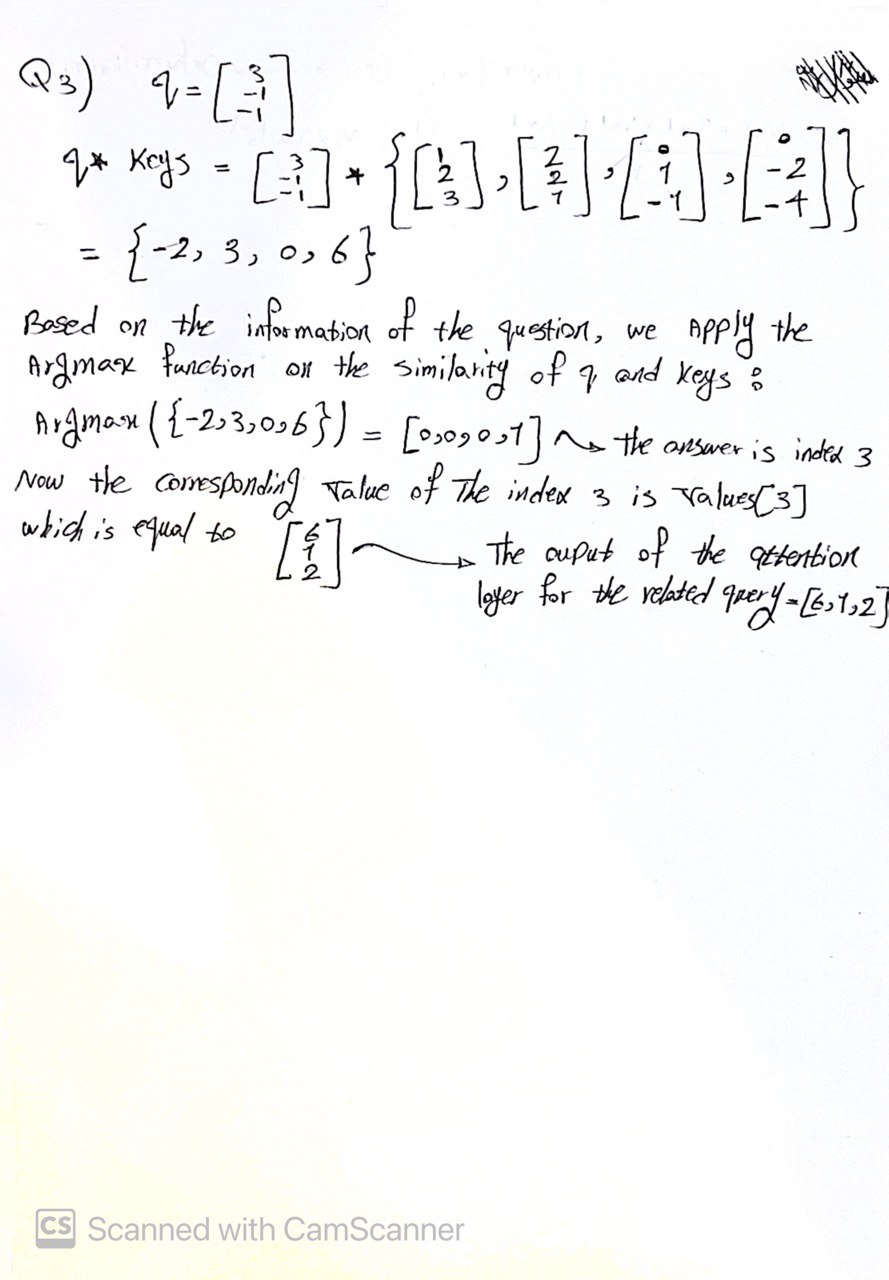 Q3) q = [3 -1 -1]
q * Keys = [3 -1 -1] * {[1 2 3], [2 2 1], [0 1 -1], [0 -2 -4]}
= {-2, 3, 0, 6}
Based on the information of the question, we Apply the
Argmax function on the similarity of q and keys :
Argmax ({-2,3,0,6}) = [0,0,0,1] → the answer is index 3
Now the corresponding value of The index 3 is values[3]
which is equal to [6 1 2] → The ouput of the attention
layer for the related query = [6,1,2]
CS Scanned with CamScanner